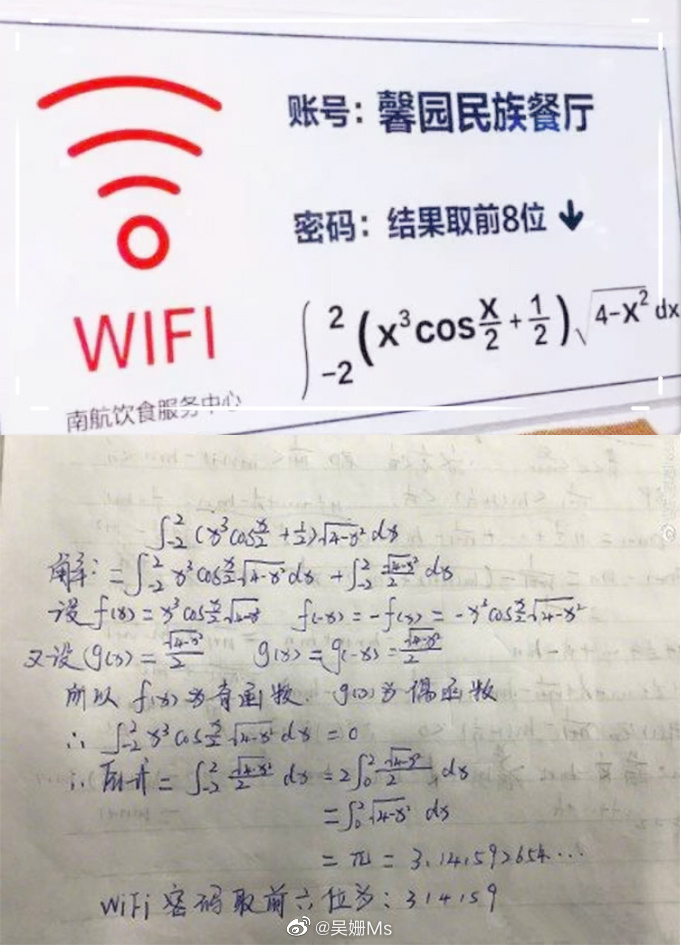 账号：馨园民族餐厅
密码：结果取前8位↓
∫_{-2}^{2}(x³cos x/2 + 1/2)√(4-x²) dx
WIFI
南航饮食服务中心
∫_{-2}^{2}(x³cos x/2 + 1/2)√(4-x²) dx
解：=∫_{-2}^{2} x³cos x/2 √(4-x²) dx + ∫_{-2}^{2} √(4-x²)/2 dx
设 f(x)=x³cos x/2 √(4-x²) f(-x)=-f(x)=-x³cos x/2 √(4-x²)
又设(g(x)=√(4-x²)/2 g(x)=g(-x)=√(4-x²)/2
所以 f(x)为奇函数. g(x)为偶函数
∴ ∫_{-2}^{2} x³cos x/2 √(4-x²) dx=0
∴原式=∫_{-2}^{2} √(4-x²)/2 dx=2∫_{0}^{2} √(4-x²)/2 dx
=∫_{0}^{2} √(4-x²) dx
=π=3.141592654…
WiFi 密码取前六位为：314159
@吴姗Ms